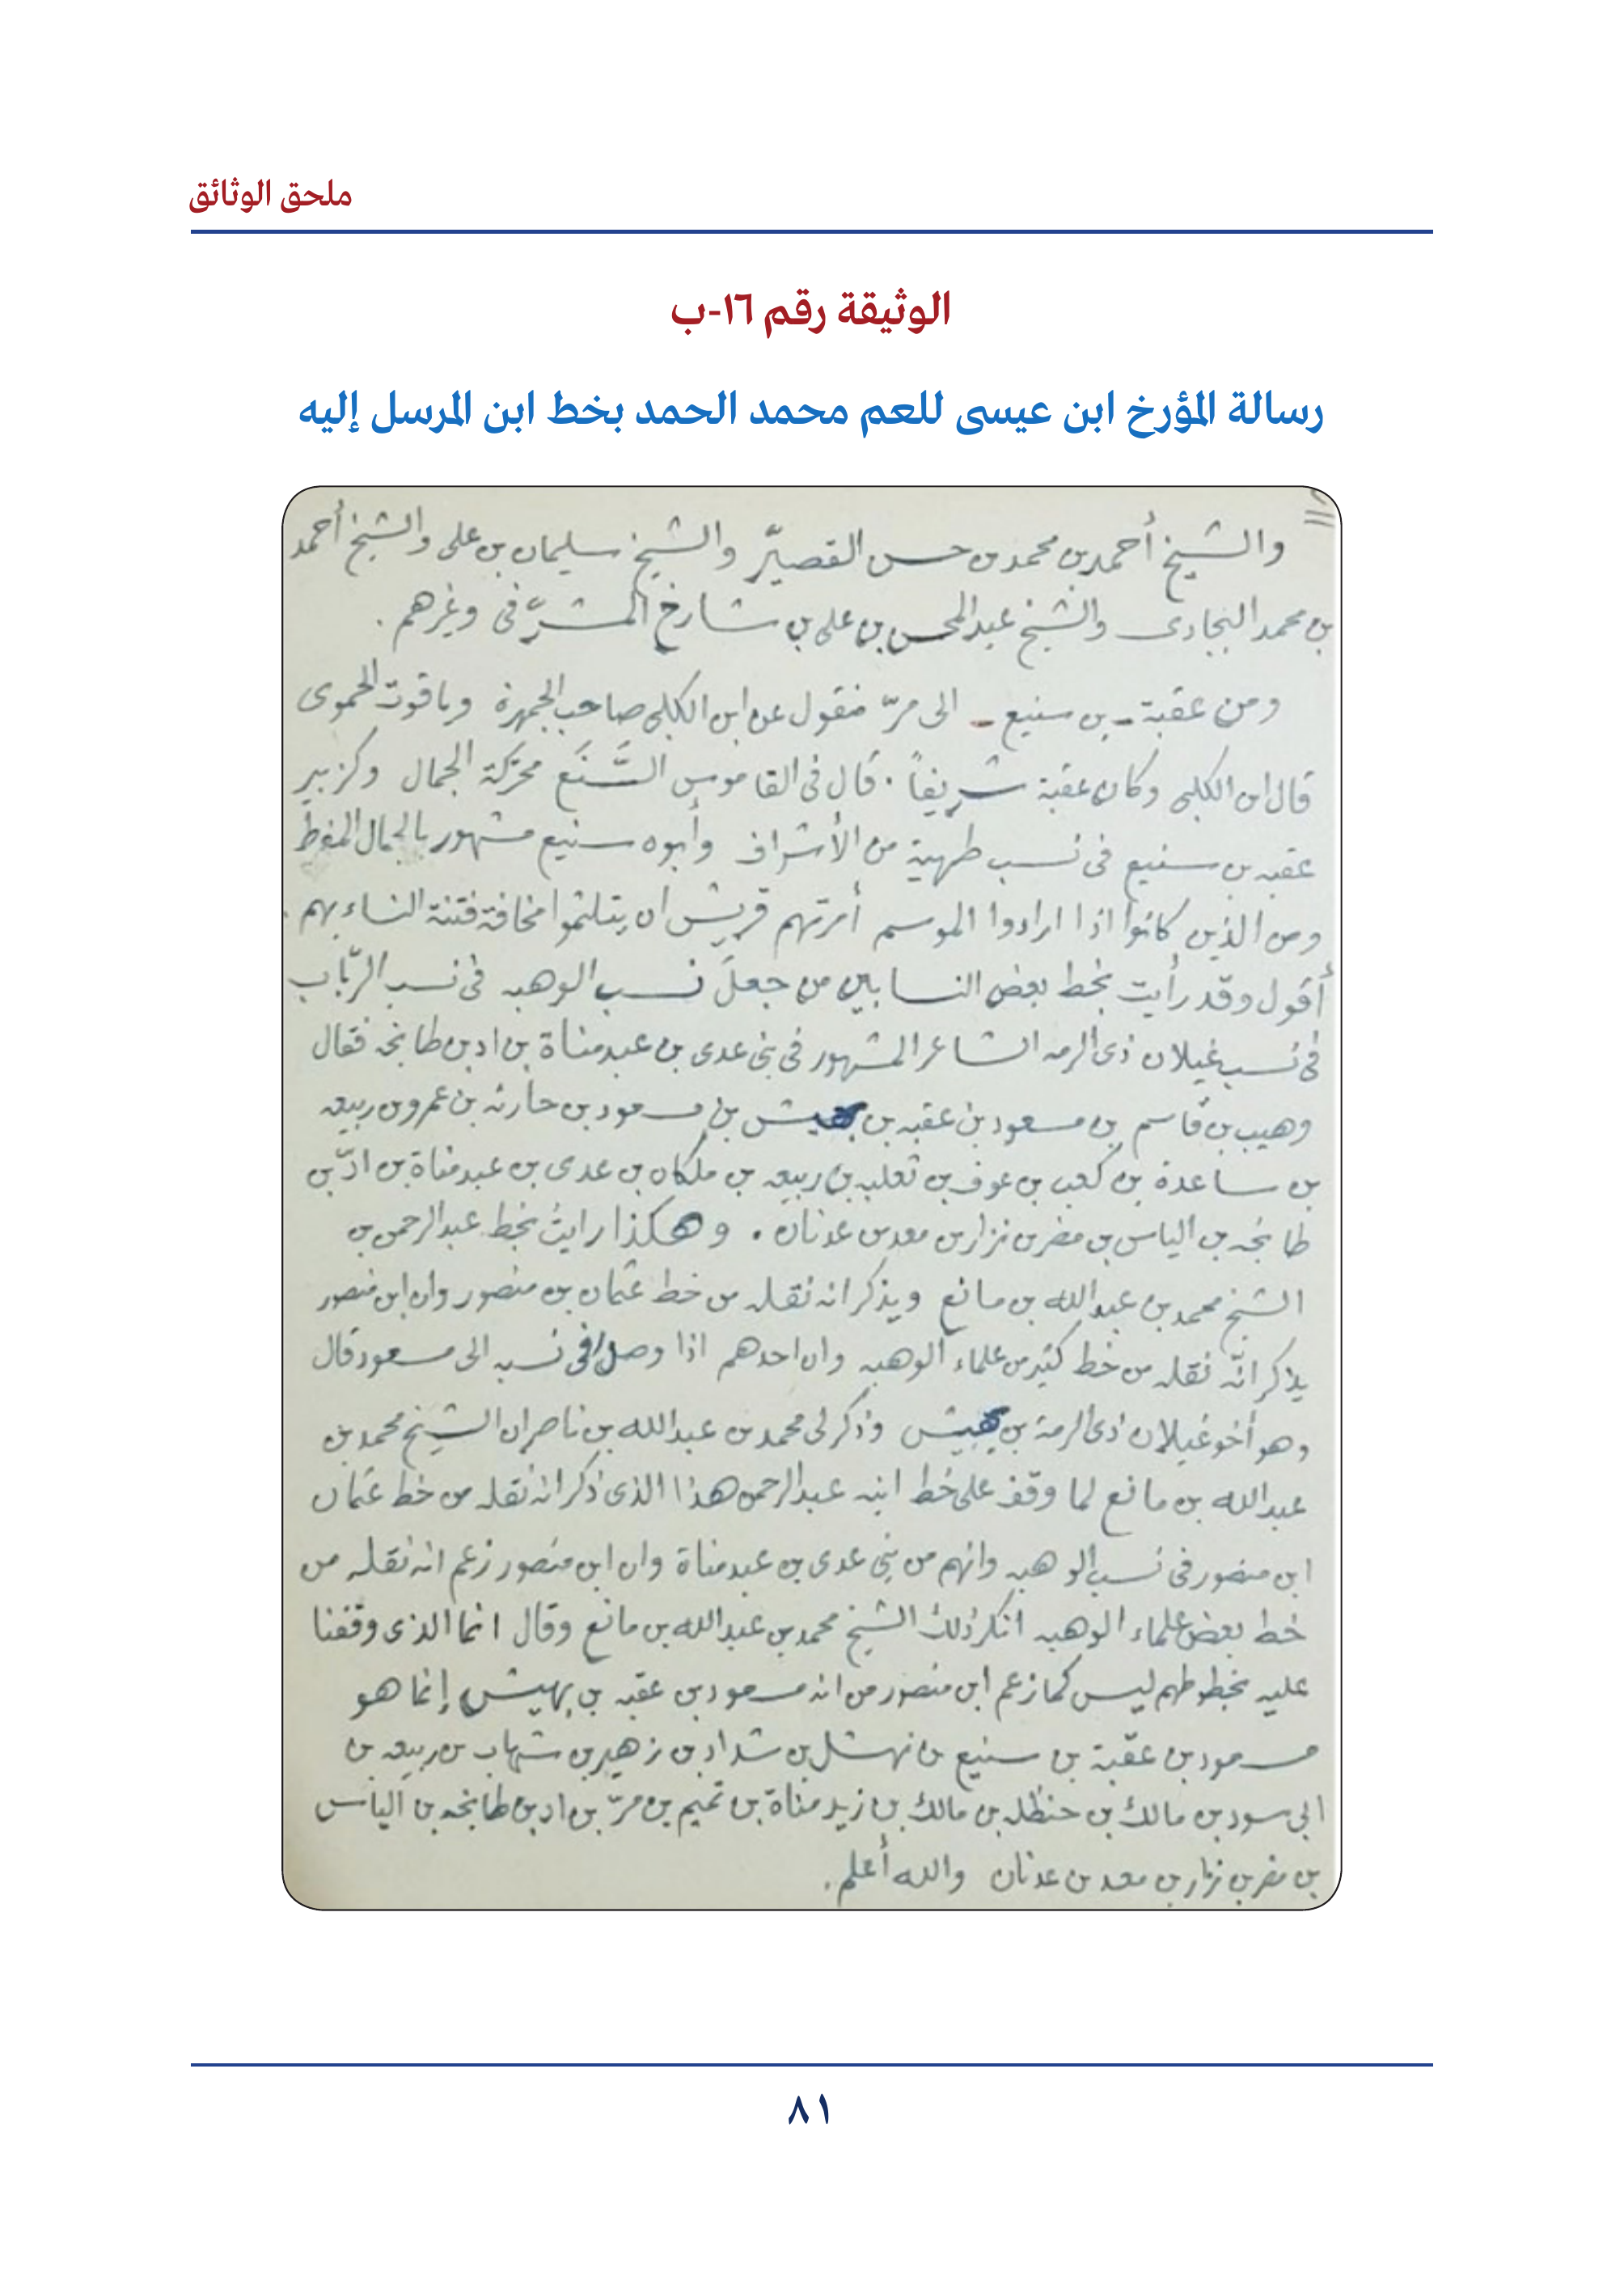 ملحق الوثائق
الوثيقة رقم ١٦-ب
رسالة المؤرخ ابن عيسى للعم محمد الحمد بخط ابن المرسل إليه
والشيخ أحمد بن محمد بن حسن القصيّر والشيخ سليمان بن على والشيخ أحمد
بن محمد البجادى والشيخ عبدالمحسن بن على بن شارخ المشرّفى وغيرهم .
ومن عقبة - بن سنيع - الى مرّ منقول عن ابن الكلبى صاحب الجمهرة وياقوت الحموى
قال ابن الكلبى وكان عقبة شريفاً . قال فى القاموس السَّنَع محرّكة الجمال وكزبير
عقبه بن سنيع فى نسب طهية من الأشراف وأبوه سنيع مشهور بالجمال المفرط
ومن الذين كانوا اذا ارادوا الموسم أمرتهم قريش ان يتلثموا مخافة فتنة النساء بهم .
أقول وقد رأيت بخط بعض النسابين من جعل نسب الوهبه فى نسب الرّباب
فى نسب غيلان ذى الرمه الشاعر المشهور فى بنى عدى بن عبد مناة بن اد بن طابخه فقال
وهيب بن قاسم بن مسعود بن عقبه بن بهيش بن مسعود بن حارثه بن عمرو بن ربيعه
بن ساعدة بن كعب بن عوف بن ثعلبه بن ربيعه بن ملكان بن عدى بن عبد مناة بن ادّ بن
طابخه بن الياس بن مضر بن نزار بن معد بن عدنان . وهكذا رايتُ بخط عبد الرحمن بن
الشيخ محمد بن عبدالله بن مانع ويذكر انه نقله من خط عثمان بن منصور وان ابن منصور
يذكر انّه نقله من خط كثير من علماء الوهبه وان احدهم اذا وصل فى نسبه الى مسعود قال
وهو أخو غيلان ذى الرمة بن بهيش وذكر لى محمد بن عبدالله بن ناصر ان الشيخ محمد بن
عبدالله بن مانع لما وقف على خط ابنه عبدالرحمن هذا الذى ذكر انه نقله من خط عثمان
ابن منصور فى نسب الوهبه وانهم من بنى عدى بن عبد مناة وان ابن منصور زعم انه نقله من
خط بعض علماء الوهبه انكر ذلك الشيخ محمد بن عبدالله بن مانع وقال انما الذى وقفنا
عليه بخطوطهم ليس كما زعم ابن منصور من انه مسعود بن عقبه بن بهيش إنما هو
مسعود بن عقبة بن سنيع بن نهشل بن شداد بن زهير بن شهاب بن ربيعه بن
ابى سود بن مالك بن حنظله بن مالك بن زيد مناة بن تميم بن مرّ بن اد بن طابخه بن الياس
بن مضر بن نزار بن معد بن عدنان والله أعلم .
٨١